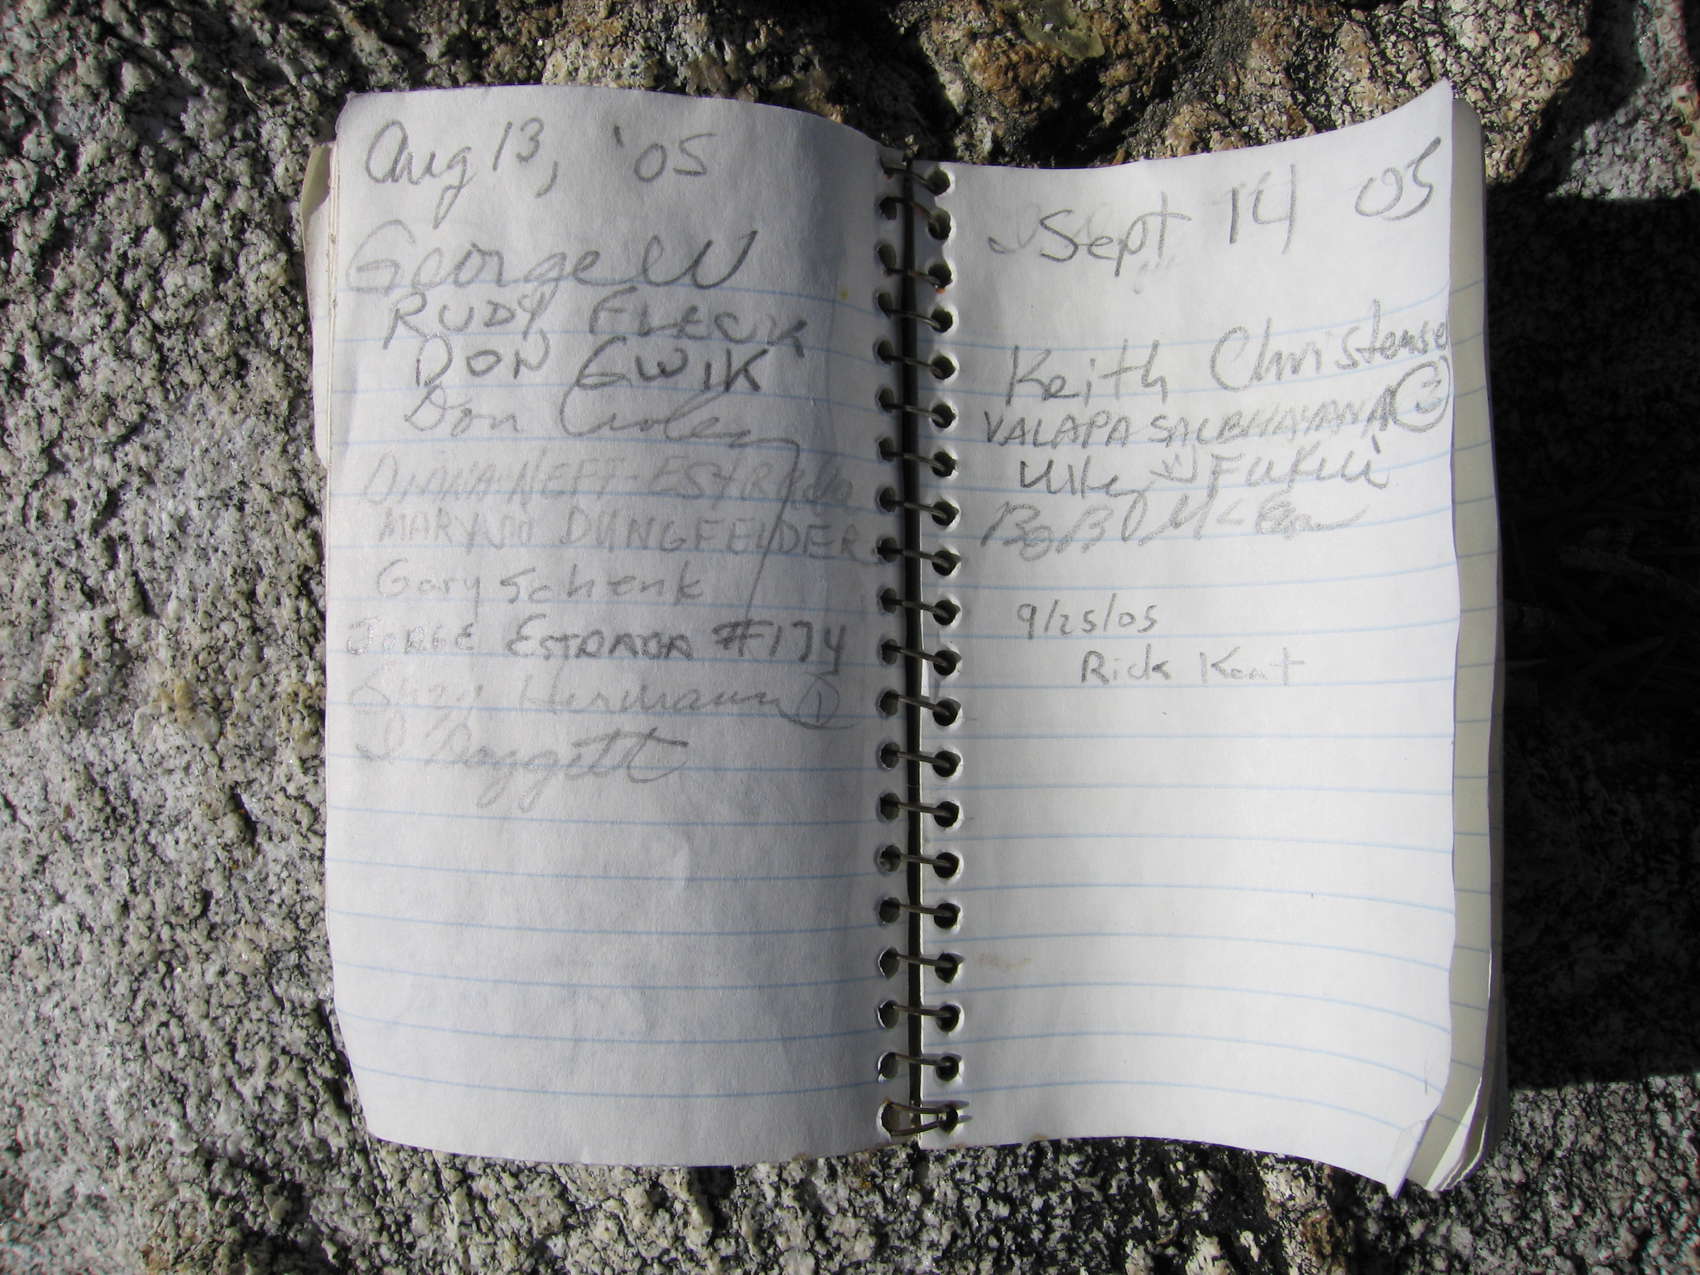 Aug 13, '05
George W
RUDY FLECK
DON GWIK
Don Croley
DIANA NEFF-ESTRADA
MARY JO DUNGFELDER
Gary Schenk
JORGE ESTRADA #174
Suzy Hermann ①
D Doggett
Sept 14 05
Keith Christense
VALAPA SALBHAYANA
Fukui
Bob
9/25/05
Rick Kent